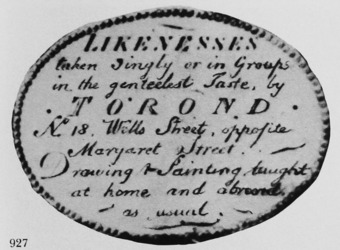 LIKENESSES
taken Singly or in Group
in the genteelest Taste, by
TOROND.
No 18. Wells Street, opposite
Margaret Street.
Drawing & Painting taught
at home and abroad
as usual.
927